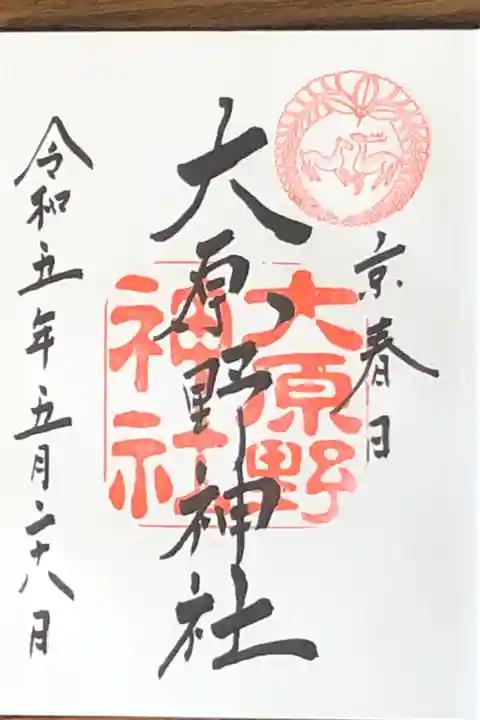 京春日
大原野神社
大原野
神社
令和五年五月二十八日